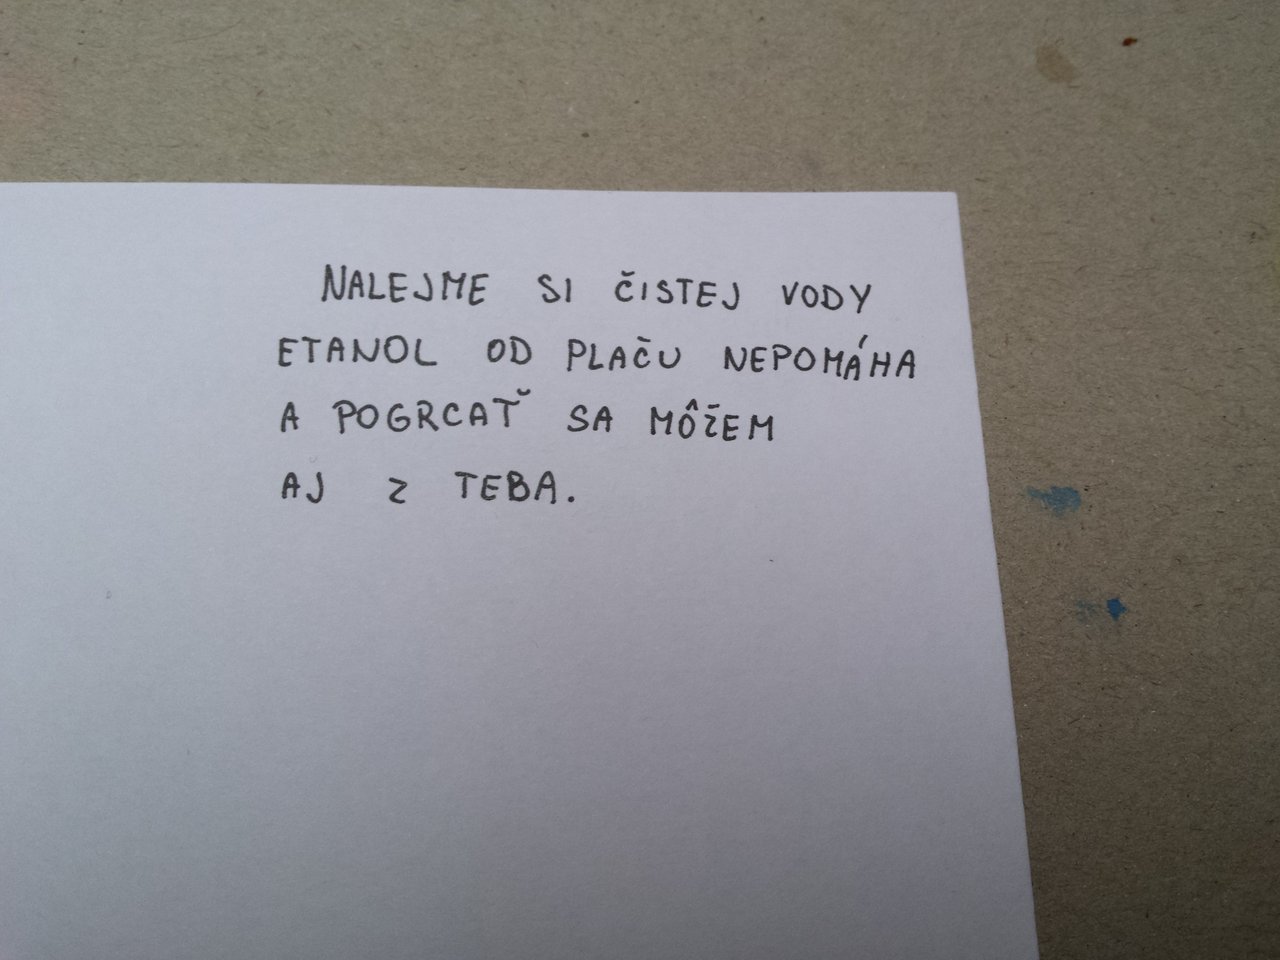 NALEJME SI ČISTEJ VODY
ETANOL OD PLAČU NEPOMÁHA
A POGRCAŤ SA MÔŽEM
AJ Z TEBA.